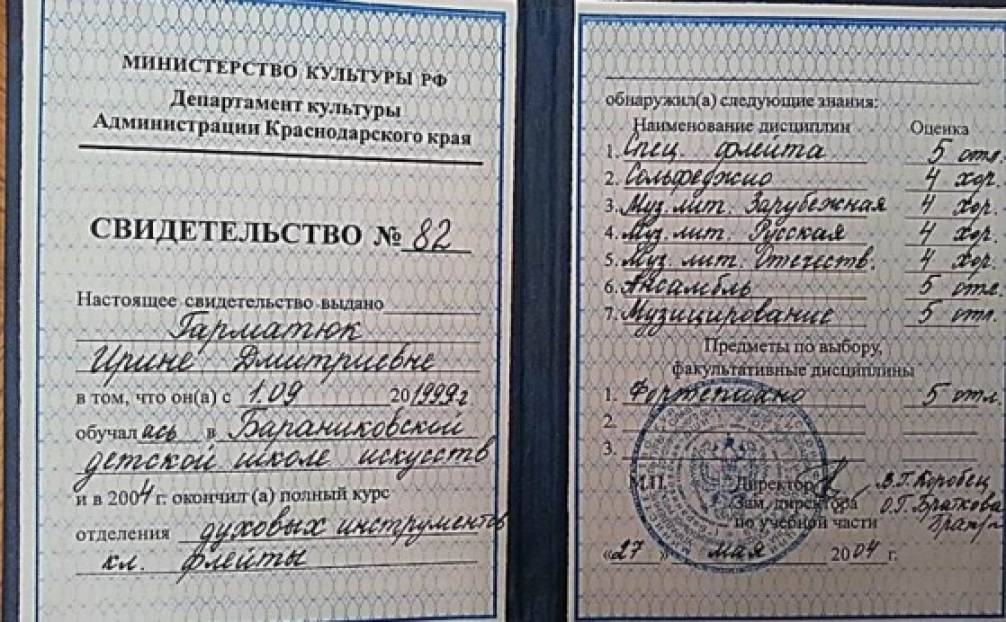 МИНИСТЕРСТВО КУЛЬТУРЫ РФ
Департамент культуры
Администрации Краснодарского края
СВИДЕТЕЛЬСТВО № 82
Настоящее свидетельство выдано
Гарматюк
Ирине Дмитриевне
в том, что он(а) с 1.09 201999г
обучалась в Бараниковской
детской школе искусств
и в 2004 г. окончил (а) полный курс
отделения духовых инструментов
кл. флейты
обнаружил(а) следующие знания:
Наименование дисциплин Оценка
1. Спец флейта 5 отл.
2. Сольфеджио 4 хор.
3. Муз. лит. Зарубежная 4 хор.
4. Муз. лит. Русская 4 хор.
5. Муз. лит. Отечеств. 4 хор.
6. Ансамбль 5 отл.
7. Музицирование 5 отл.
Предметы по выбору,
факультативные дисциплины
1. Фортепиано 5 отл.
2.
3.
М.П. Директор В.Г. Коробец
Зам. директора О.Г. Браткова
по учебной части
«27» мая 2004 г.